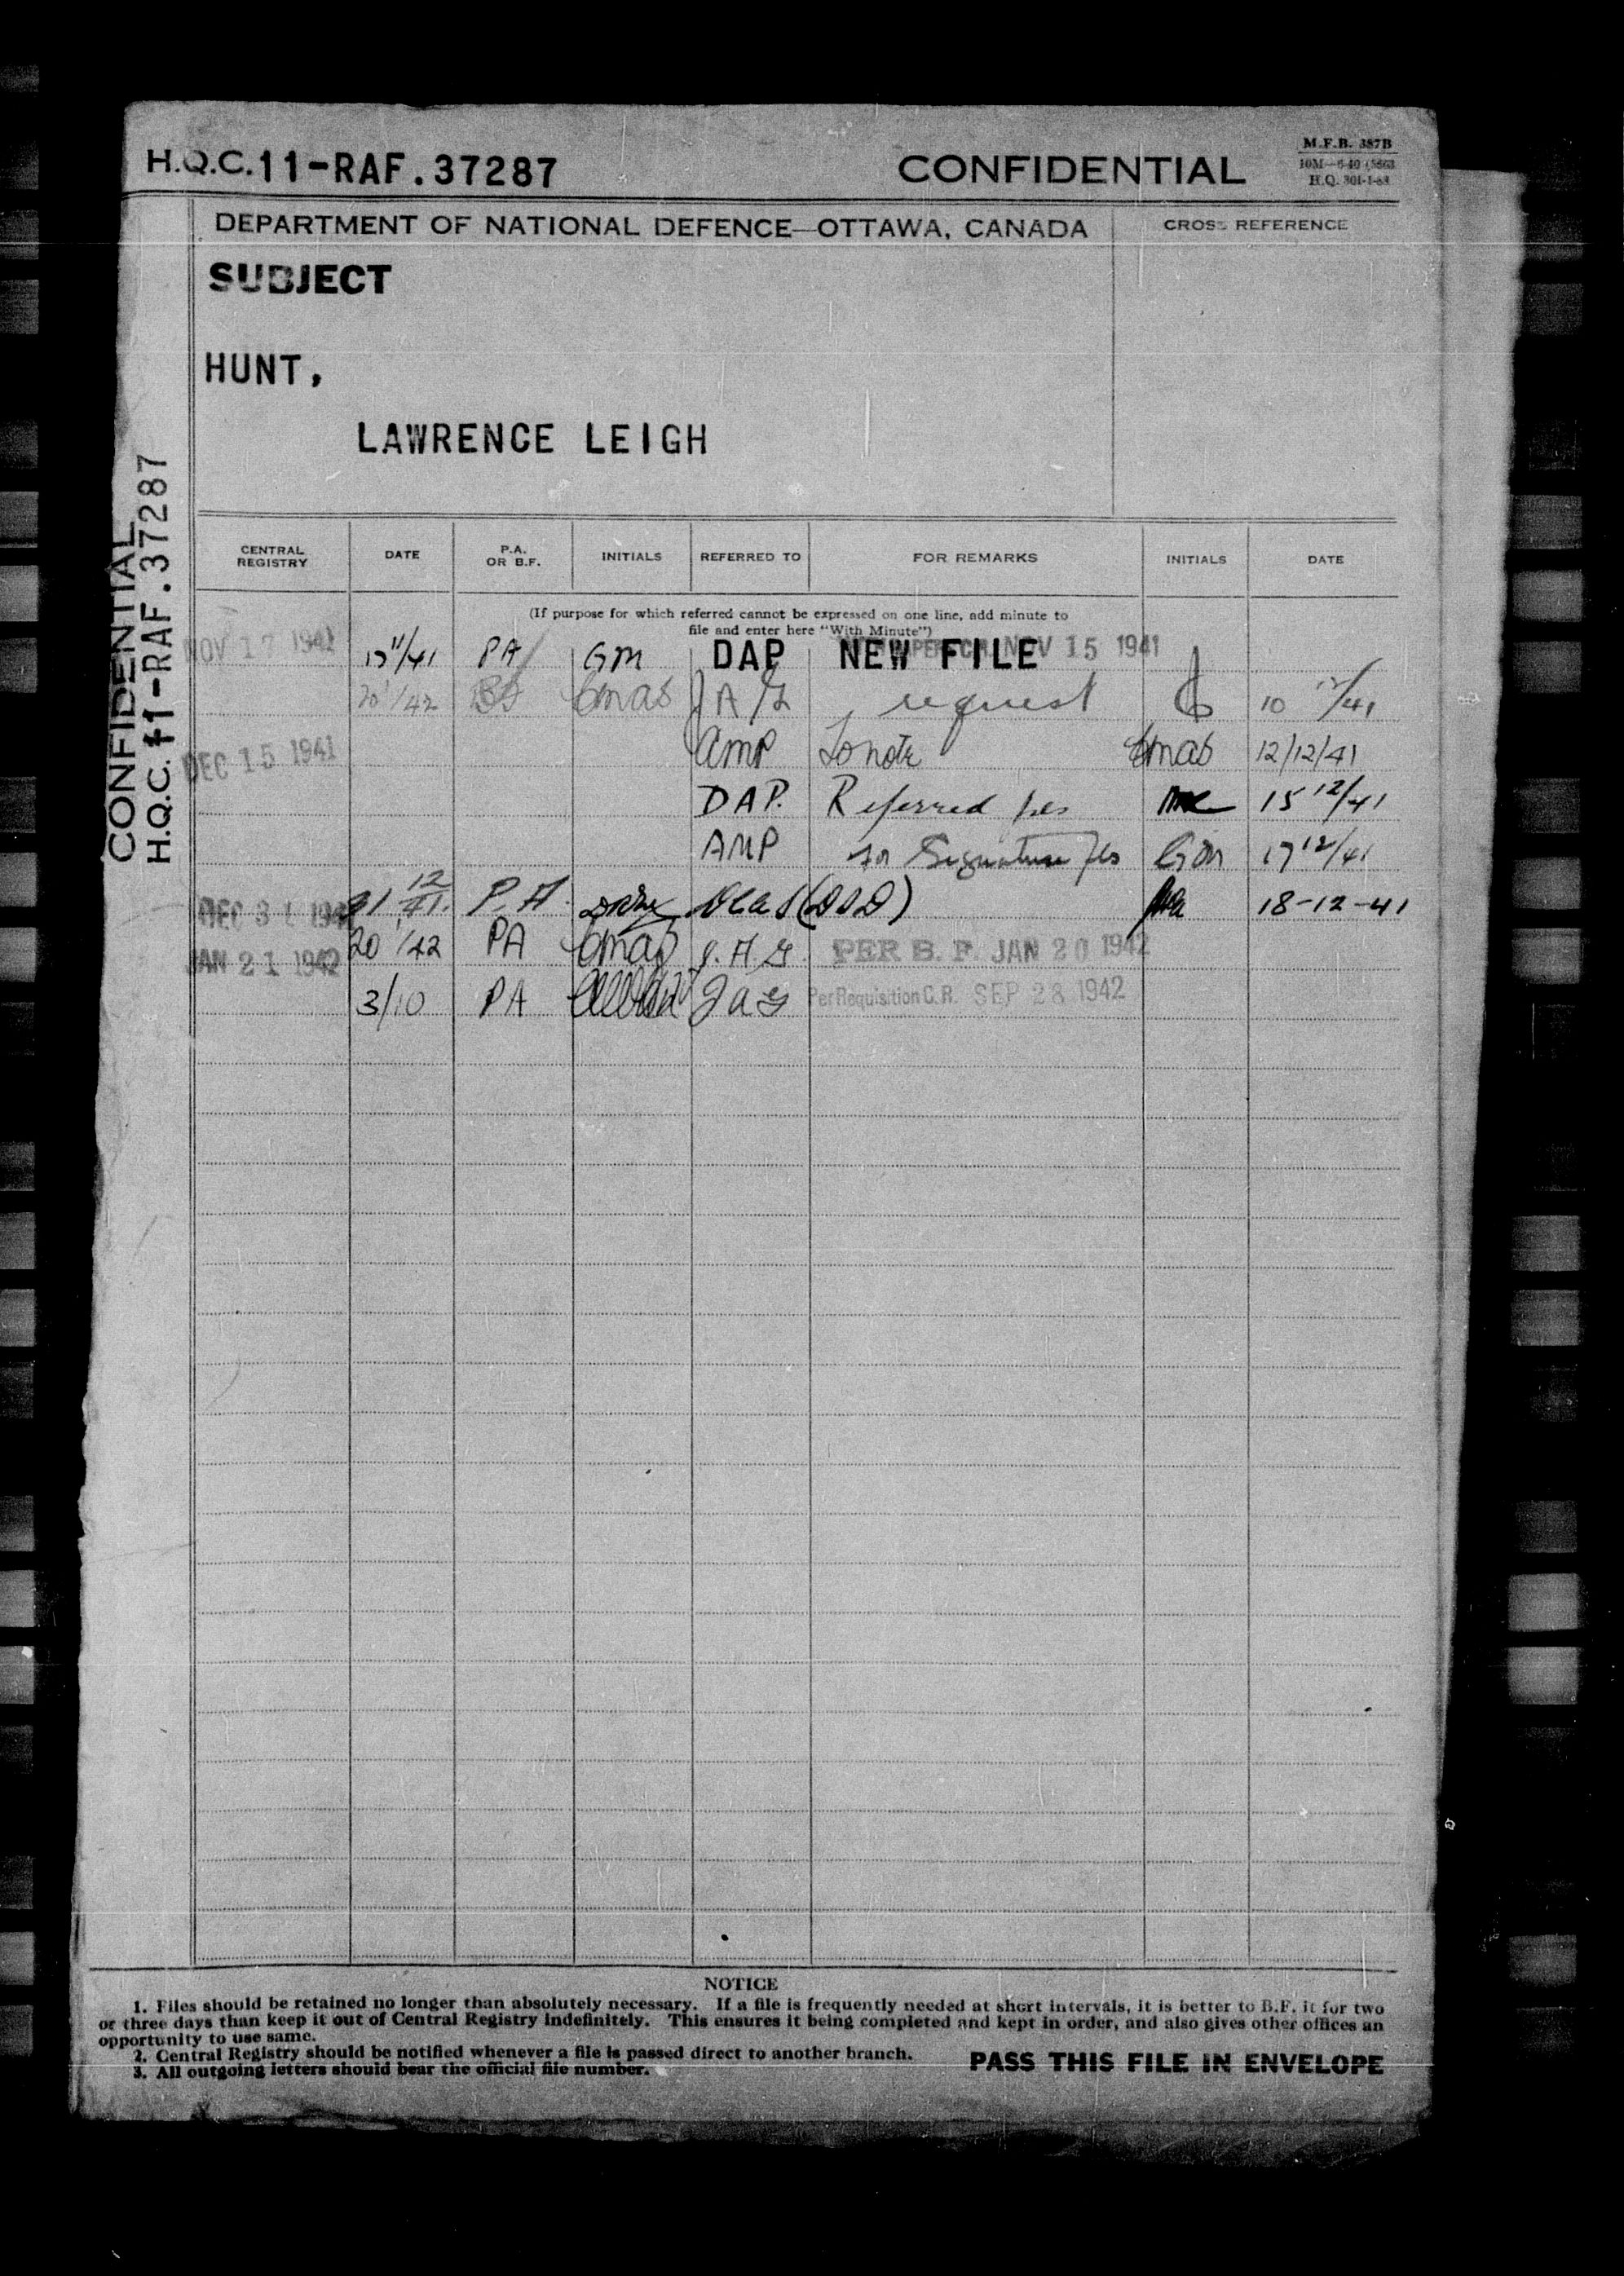 H.Q.C. 11-RAF.37287 CONFIDENTIAL M.F.B. 387B
H.Q. 301-1-83
DEPARTMENT OF NATIONAL DEFENCE—OTTAWA, CANADA CROSS REFERENCE
SUBJECT
HUNT,
LAWRENCE LEIGH
CONFIDENTIAL
H.Q.C. 11-RAF.37287
CENTRAL REGISTRY DATE P.A. OR B.F. INITIALS REFERRED TO FOR REMARKS INITIALS DATE
(If purpose for which referred cannot be expressed on one line, add minute to
file and enter here "With Minute")
NOV 17 1941 17 11/41 PA GM DAP NEW FILE NOV 15 1941
20 1/42 BF request 10 12/41
DEC 15 1941 AMP To note 12/12/41
DAP. Referred pls 15 12/41
AMP for Signature pls GM 17 12/41
DEC 31 1941 31 12/41. P.A. 18-12-41
JAN 21 1942 20 1/42 PA J.A.G. PER B. F. JAN 20 1942
3/10 PA JAG Per Requisition C.R. SEP 28 1942
NOTICE
1. Files should be retained no longer than absolutely necessary. If a file is frequently needed at short intervals, it is better to B.F. it for two
or three days than keep it out of Central Registry indefinitely. This ensures it being completed and kept in order, and also gives other offices an
opportunity to use same.
2. Central Registry should be notified whenever a file is passed direct to another branch.
3. All outgoing letters should bear the official file number.
PASS THIS FILE IN ENVELOPE